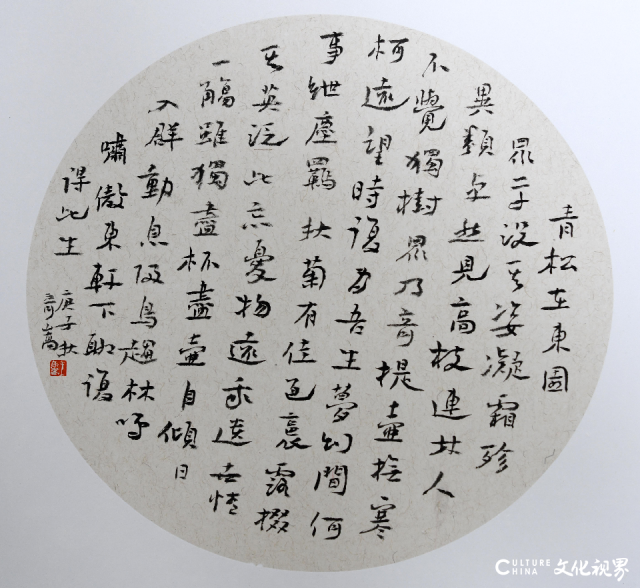 青松在東園
眾草沒其姿凝霜殄
異類卓然見高枝連林人
不覺獨樹眾乃奇提壺撫寒
柯遠望時復為吾生夢幻間何
事紲塵羈秋菊有佳色裛露掇
其英泛此忘憂物遠我遺世情
一觴雖獨盡杯盡壺自傾日
入群動息歸鳥趨林鳴
嘯傲東軒下聊復
得此生
庚子秋
嵩
CULTURE CHINA 文化视界